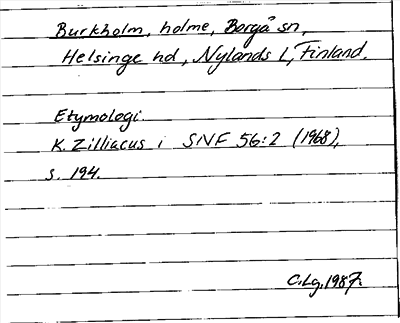 Burkholm, holme, Borgå sn,
Helsinge hd, Nylands l, Finland.
Etymologi.
K. Zilliacus i SNF 56:2 (1968),
s. 194.
C.Lg, 1987.